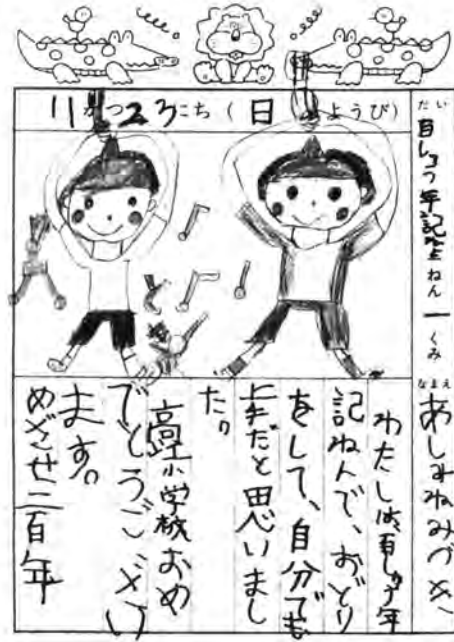 11がつ23にち（日ようび）
だい
百しゅう年記
ねん 一 くみ
なまえ
あしみねみづき
わたしは、百しゅう年
記ねんで、おどり
をして、自分でも
上手だと思いまし
た。
高小学校おめ
でとうござい
ます。
めざせ二百年